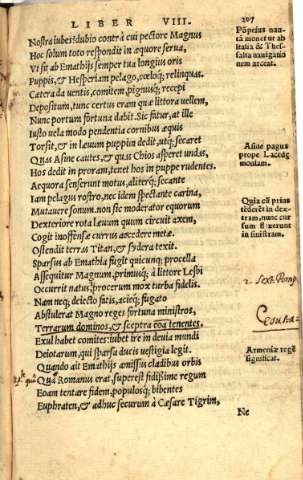 LIBER VIII. 207
Nostra iubes: dubio contrà cui pectore Magnus
Hoc solum toto respondit in æquore serua,
Vt sit ab Emathijs semper tua longius oris
Puppis, & Hesperiam pelago, cœloq; relinquas.
Cætera da uentis, comitem, pignusq; recepi
Depositum, tunc certus eram quæ littora uellem,
Nunc portum fortuna dabit. Sic fatur, at ille
Iusto uela modo pendentia cornibus æquis
Torsit, & in læuum puppim dedit, utq; secaret
Quas Asinæ cautes, & quas Chios asperet undas,
Hos dedit in proram, tenet hos in puppe rudentes.
Aequora senserunt motus, aliterq; secante
Iam pelagus rostro, nec idem spectante carina,
Mutauere sonum. non sic moderator equorum
Dexteriore rota læuum quum circuit axem,
Cogit inoffensæ currus accedere metæ.
Ostendit terras Titan, & sydera texit.
Sparsus ab Emathia fugit quicunq; procella
Assequitur Magnum, primusq; à littore Lesbi
Occurrit natus, procerum mox turba fidelis.
Nam neq; deiecto fatis, acieq; fugato
Abstulerat Magno reges fortuna ministros,
Terrarum dominos, & sceptra eoa tenentes,
Exul habet comites: iubet ire in deuia mundi
Deiotarum, qui sparsa ducis uestigia legit.
Quando ait Emathijs amissus cladibus orbis
Qua Romanus erat, superest fidissime regum
Eoam tentare fidem, populosq; bibentes
Euphraten, & adhuc securum à Cæsare Tigrim,
Ne
Pōpeius nau-
tā monet ut ab
Italia & Thes-
salia nauigatio
nem arceat.
Asine pagus
prope Lacedæ
moniam.
Quia cū prius
tēderēt in dex-
tram, nunc cur
sum flexerunt
in sinistram.
2. Sext. Pomp.
Armeniæ regē
significat.